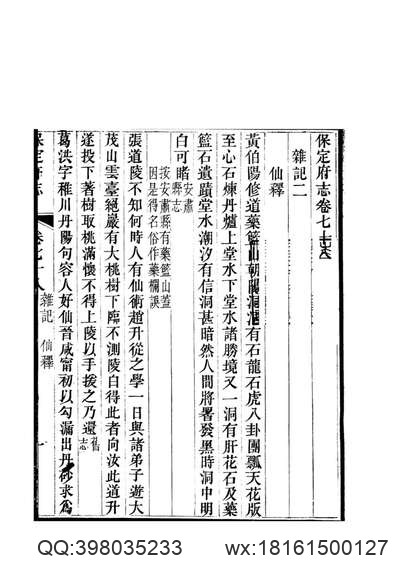 保定府志卷七十八
雜記二
仙釋
黃伯陽修道藥籃山朝陽洞洞有石龍石虎八卦團瓢天花版
至心石煉丹爐上堂水下堂水諸勝境又一洞有肝花石及藥
籃石遺蹟堂水潮汐有信洞甚暗然人間將署發黑時洞中明
白可睹安肅縣志
按安肅縣有藥籃山蓋
因是得名俗作藥欄誤
張道陵不知何時人有仙術趙升從之學一日與諸弟子遊大
茂山雲臺絕巖有大桃樹下臨不測陵白得此者向汝此道升
遂投下著樹取桃滿懷不得上陵以手援之乃還舊志
葛洪字稚川丹陽句容人好仙晉咸甯初以勾漏出丹砂求為
保定府志 卷七十八 雜記 仙釋 一
QQ:398035233 wx:18161500127